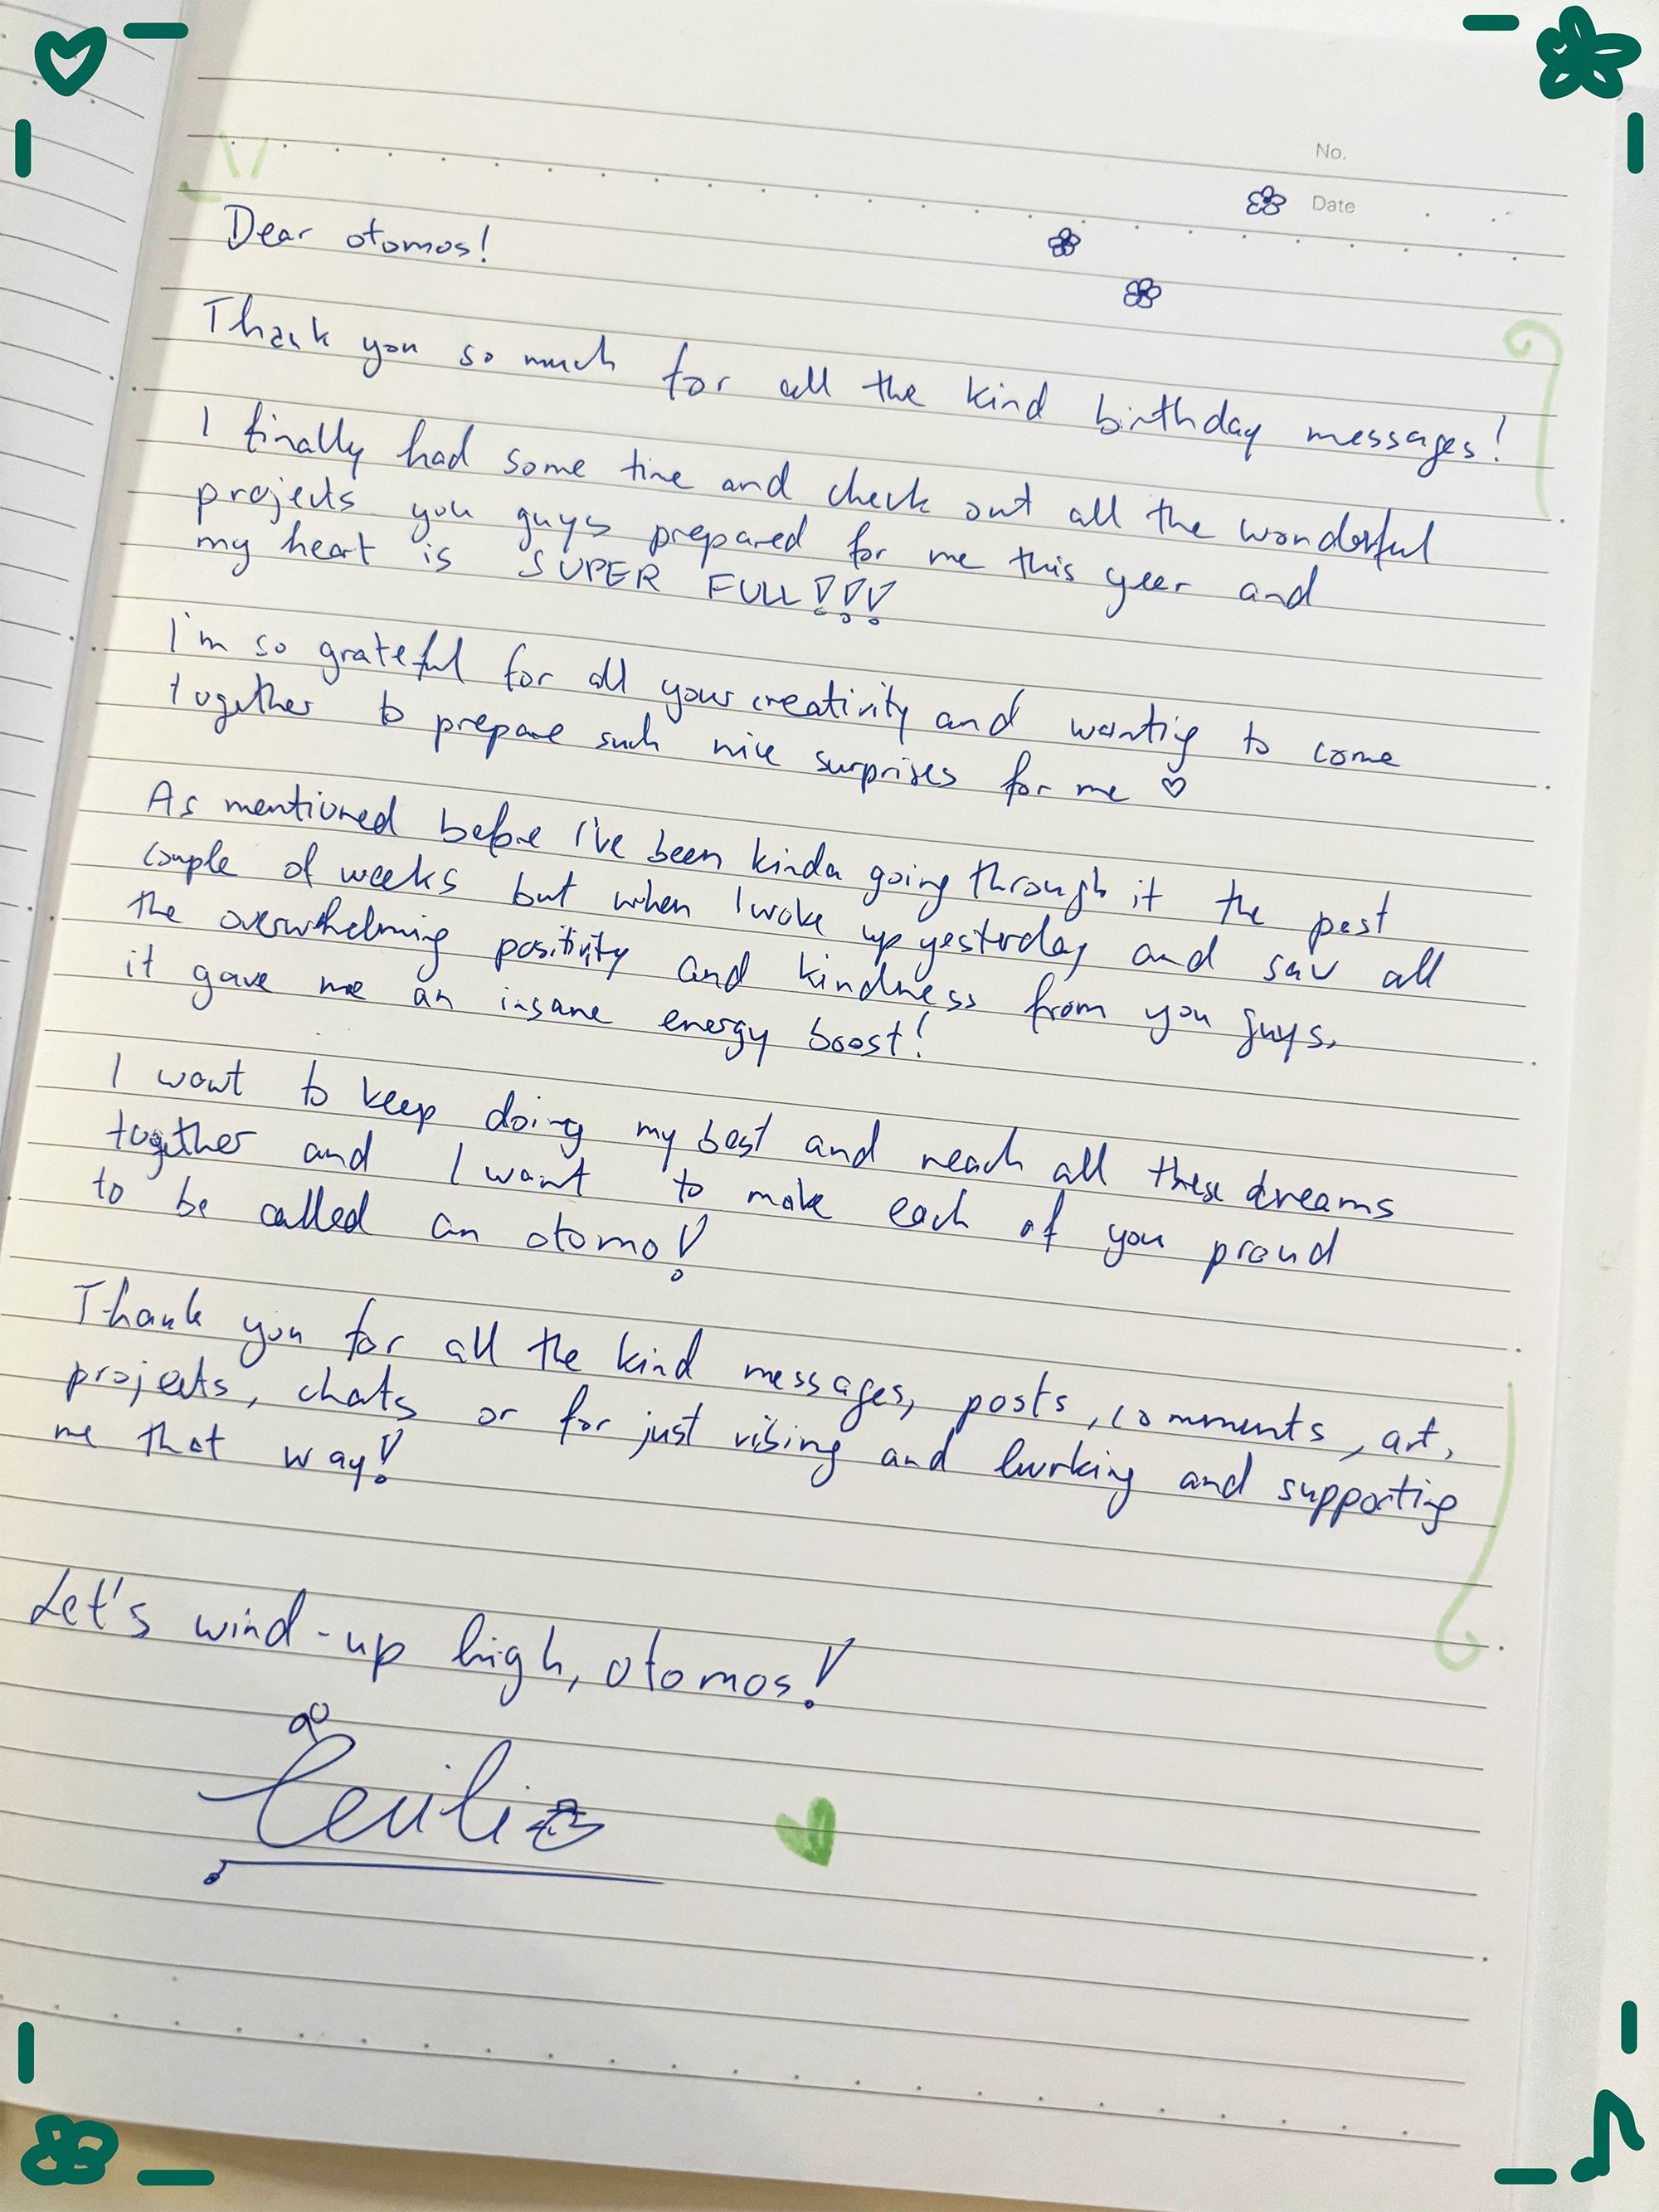 No.
Date
Dear otomos!
Thank you so much for all the kind birthday messages!
I finally had some time and check out all the wonderful
projects you guys prepared for me this year and
my heart is SUPER FULL!!!
I'm so grateful for all your creativity and wanting to come
together to prepare such nice surprises for me ♡
As mentioned before I've been kinda going through it the past
couple of weeks but when I woke up yesterday and saw all
the overwhelming positivity and kindness from you guys,
it gave me an insane energy boost!
I want to keep doing my best and reach all these dreams
together and I want to make each of you proud
to be called an otomo!
Thank you for all the kind messages, posts, comments, art,
projects, chats or for just vibing and lurking and supporting
me that way!
Let's wind-up high, otomos!
Cecilia